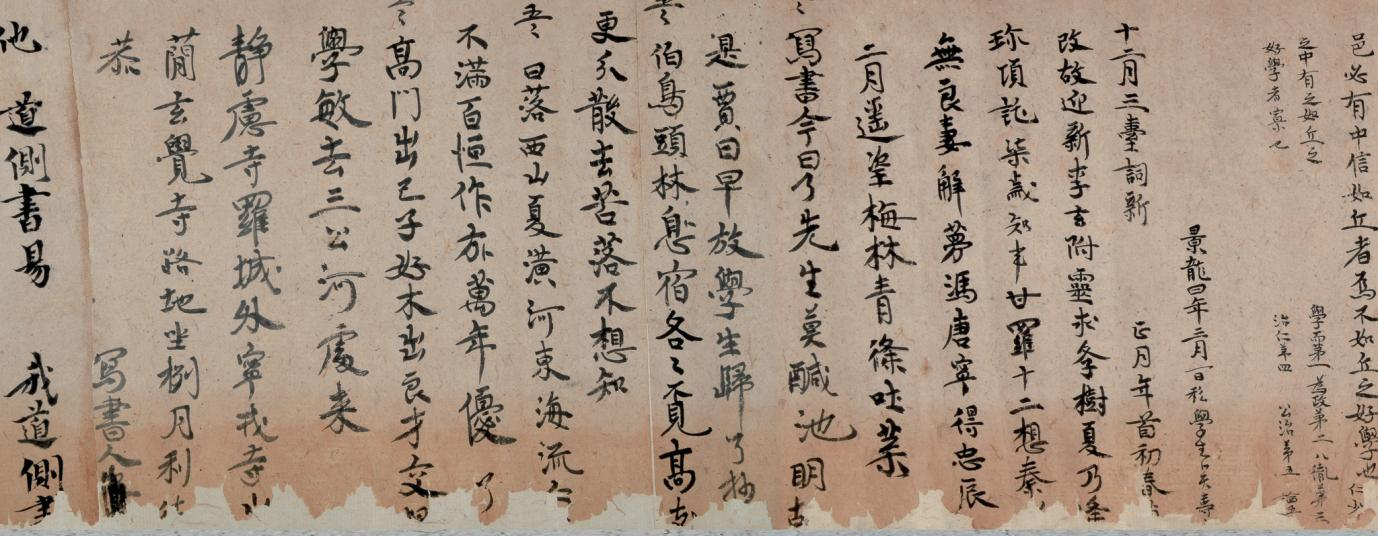 邑必有中信如丘者焉不如丘之好學也仁少
之中有之如丘之
好學者寡也
學而第一 為政第二 八佾第三
治仁第四 公治第五
景龍四年三月一日私學生卜天壽
十二月三臺詞新 正月年首初春
改故迎新李玄附靈求樹夏乃逢
珎項託柒歲知事甘羅十二想秦
無良妻解夢馮唐寧得忠辰
二月遥望梅林青條吐葉
寫書今日了先生莫醎池明
是賈日早放學生歸 了抄
伯鳥頭林息宿各〻覓高支
更分散去苦落不想知
日落西山夏潢河東海流
不滿百恒作方萬年優 了
高門出己子好木出良才交口
學敏去三公河處来
静慮寺羅城外寧戎寺
蕳玄覺寺路地坐捌月利
恭 寫書人
他 道側書易 我道側書